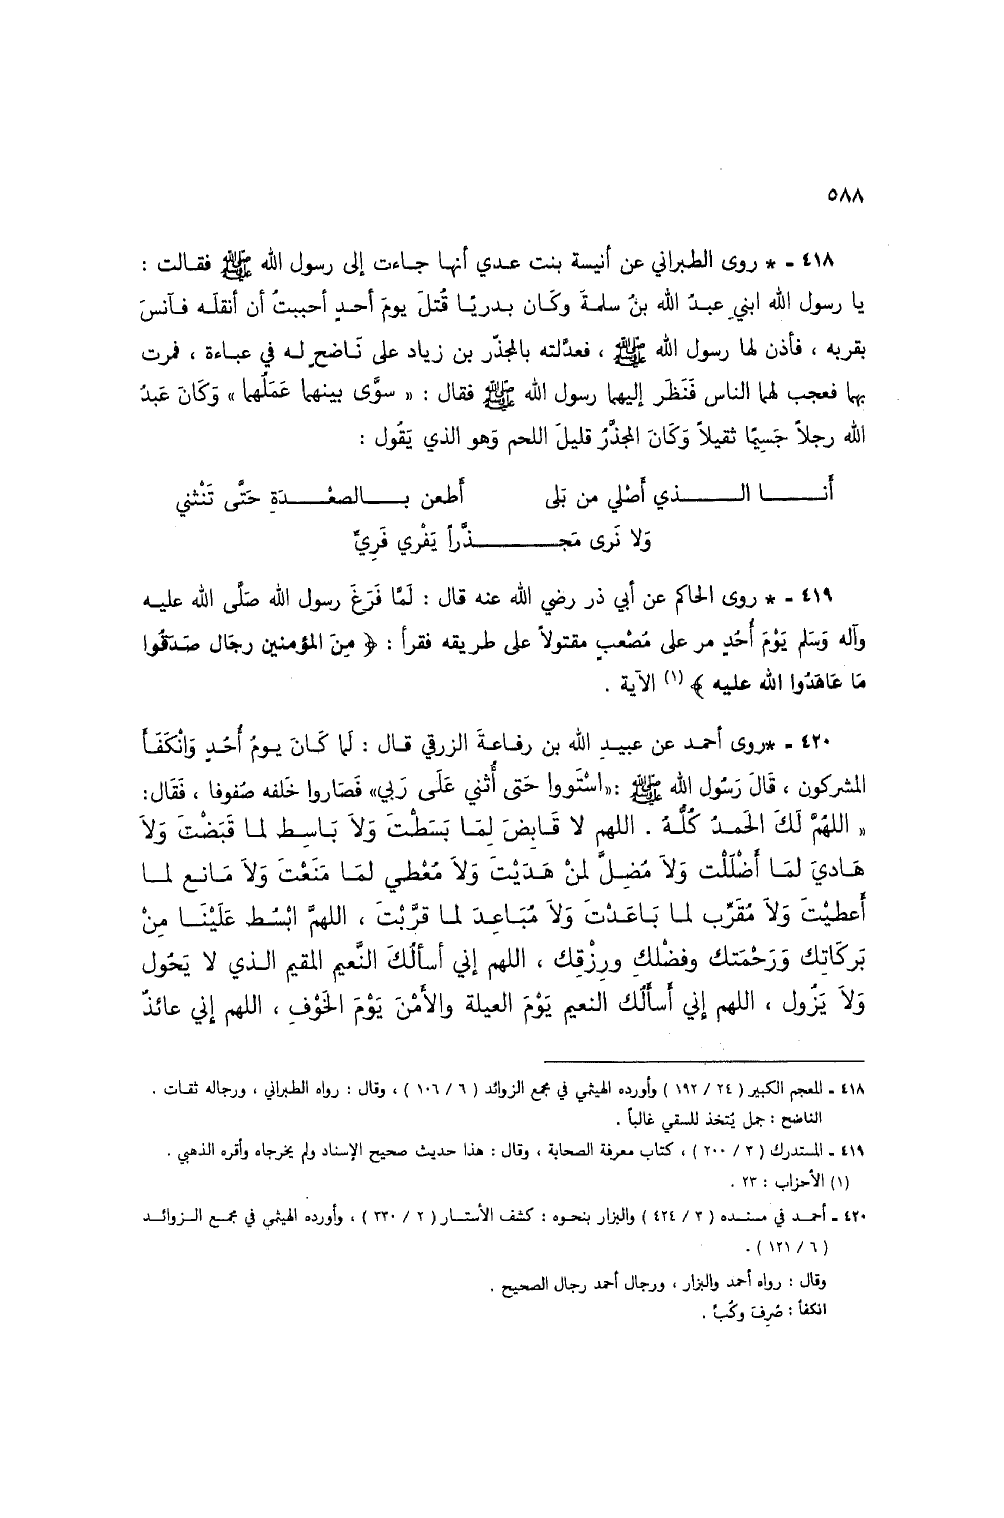 ٥٨٨
٤١٨ - * روى الطبراني عن أنيسة بنت عدي أنها جاءت إلى رسول الله ﷺ فقالت :
يا رسول الله ابني عبدُ الله بنُ سلمةَ وكَان بدريًا قُتلَ يومَ أحدٍ أحببتُ أن أنقلَه فآنسَ
بقربه ، فأذن لها رسول الله ﷺ ، فعدَّلته بالمجذّر بن زياد على نَاضحٍ له في عباءة ، فمرت
بهما فعجب لهما الناس فَنَظَر إليهما رسول الله ﷺ فقال : « سوَّى بينهما عَمَلُهما » وَكَانَ عَبدُ
الله رجلاً جَسِيمًا ثقيلاً وَكَانَ المجَذَّرُ قليلَ اللحم وَهو الذي يَقُول :
أنــا الــذي أصْلي من بَلى أطعن بــالصعْــدَةِ حَتَّى تَنْثني
وَلا نَرى مَجــذَّراً يَفْري فَرِيّ
٤١٩ - * روى الحاكم عن أبي ذر رضي الله عنه قال : لَمَّا فَرَغَ رسول الله صَلَّى الله عليه
وآله وَسَلم يَوْمَ أُحُدٍ مر على مُصْعبٍ مقتولاً على طريقه فقرأ : ﴿ مِنَ المؤمنين رجَال صَدَقُوا
مَا عَاهَدُوا الله عليه ﴾ (١) الآية .
٤٢٠ - *روى أحمد عن عبيدِ الله بن رفاعةَ الزرقي قال : لَما كَانَ يومُ أُحُدٍ وَانْكَفَأَ
المشركون ، قَالَ رَسُول الله ﷺ :«اسْتَووا حَتى أُثني عَلَى رَبي» فَصَاروا خَلفه صُفوفا ، فَقَال:
« اللهُمَّ لَكَ الحَمدُ كُلُّهُ . اللهم لا قَابِضَ لِمَا بَسَطْتَ وَلاَ بَاسِط لما قَبَضْتَ وَلاَ
هَاديَ لمَا أَضْلَلْت وَلاَ مُضِلَّ لمنْ هَدَيْتَ وَلاَ مُعْطي لمَا مَنَعْت وَلاَ مَانع لما
أَعطيْتَ وَلاَ مُقَرّب لما بَاعَدْتَ وَلاَ مُبَاعِدَ لما قرَّبْتَ ، اللهمَّ ابْسُط عَلَيْنَا مِنْ
بَركَاتِك وَرَحْمَتك وفضْلكِ ورِزْقِك ، اللهم إني أسألُكَ النَّعيم المقيم الذي لا يَحُول
وَلاَ يَزُول ، اللهم إني أَسأَلُك النعيم يَوْمَ العيلة والأَمْنَ يَوْمَ الخَوْفِ ، اللهم إني عائذٌ
٤١٨ - المعجم الكبير ( ٢٤ / ١٩٢ ) وأورده الهيثمي في مجمع الزوائد ( ٦ / ١٠٦ ) ، وقال : رواه الطبراني ، ورجاله ثقات .
الناضح : جمل يُتخذ للسقي غالباً .
٤١٩ - المستدرك ( ٣ / ٢٠٠ ) ، كتاب معرفة الصحابة ، وقال : هذا حديث صحيح الإسناد ولم يخرجاه وأقره الذهبي .
(١) الأحزاب : ٢٣ .
٤٢٠ - أحمد في مسنده ( ٣ / ٤٢٤ ) والبزار بنحوه : كشف الأستار ( ٢ / ٣٣٠ ) ، وأورده الهيثمي في مجمع الزوائد
( ٦ / ١٢١ ) .
وقال : رواه أحمد والبزار ، ورجال أحمد رجال الصحيح .
انكفأ : صُرفَ وكُبَّ .